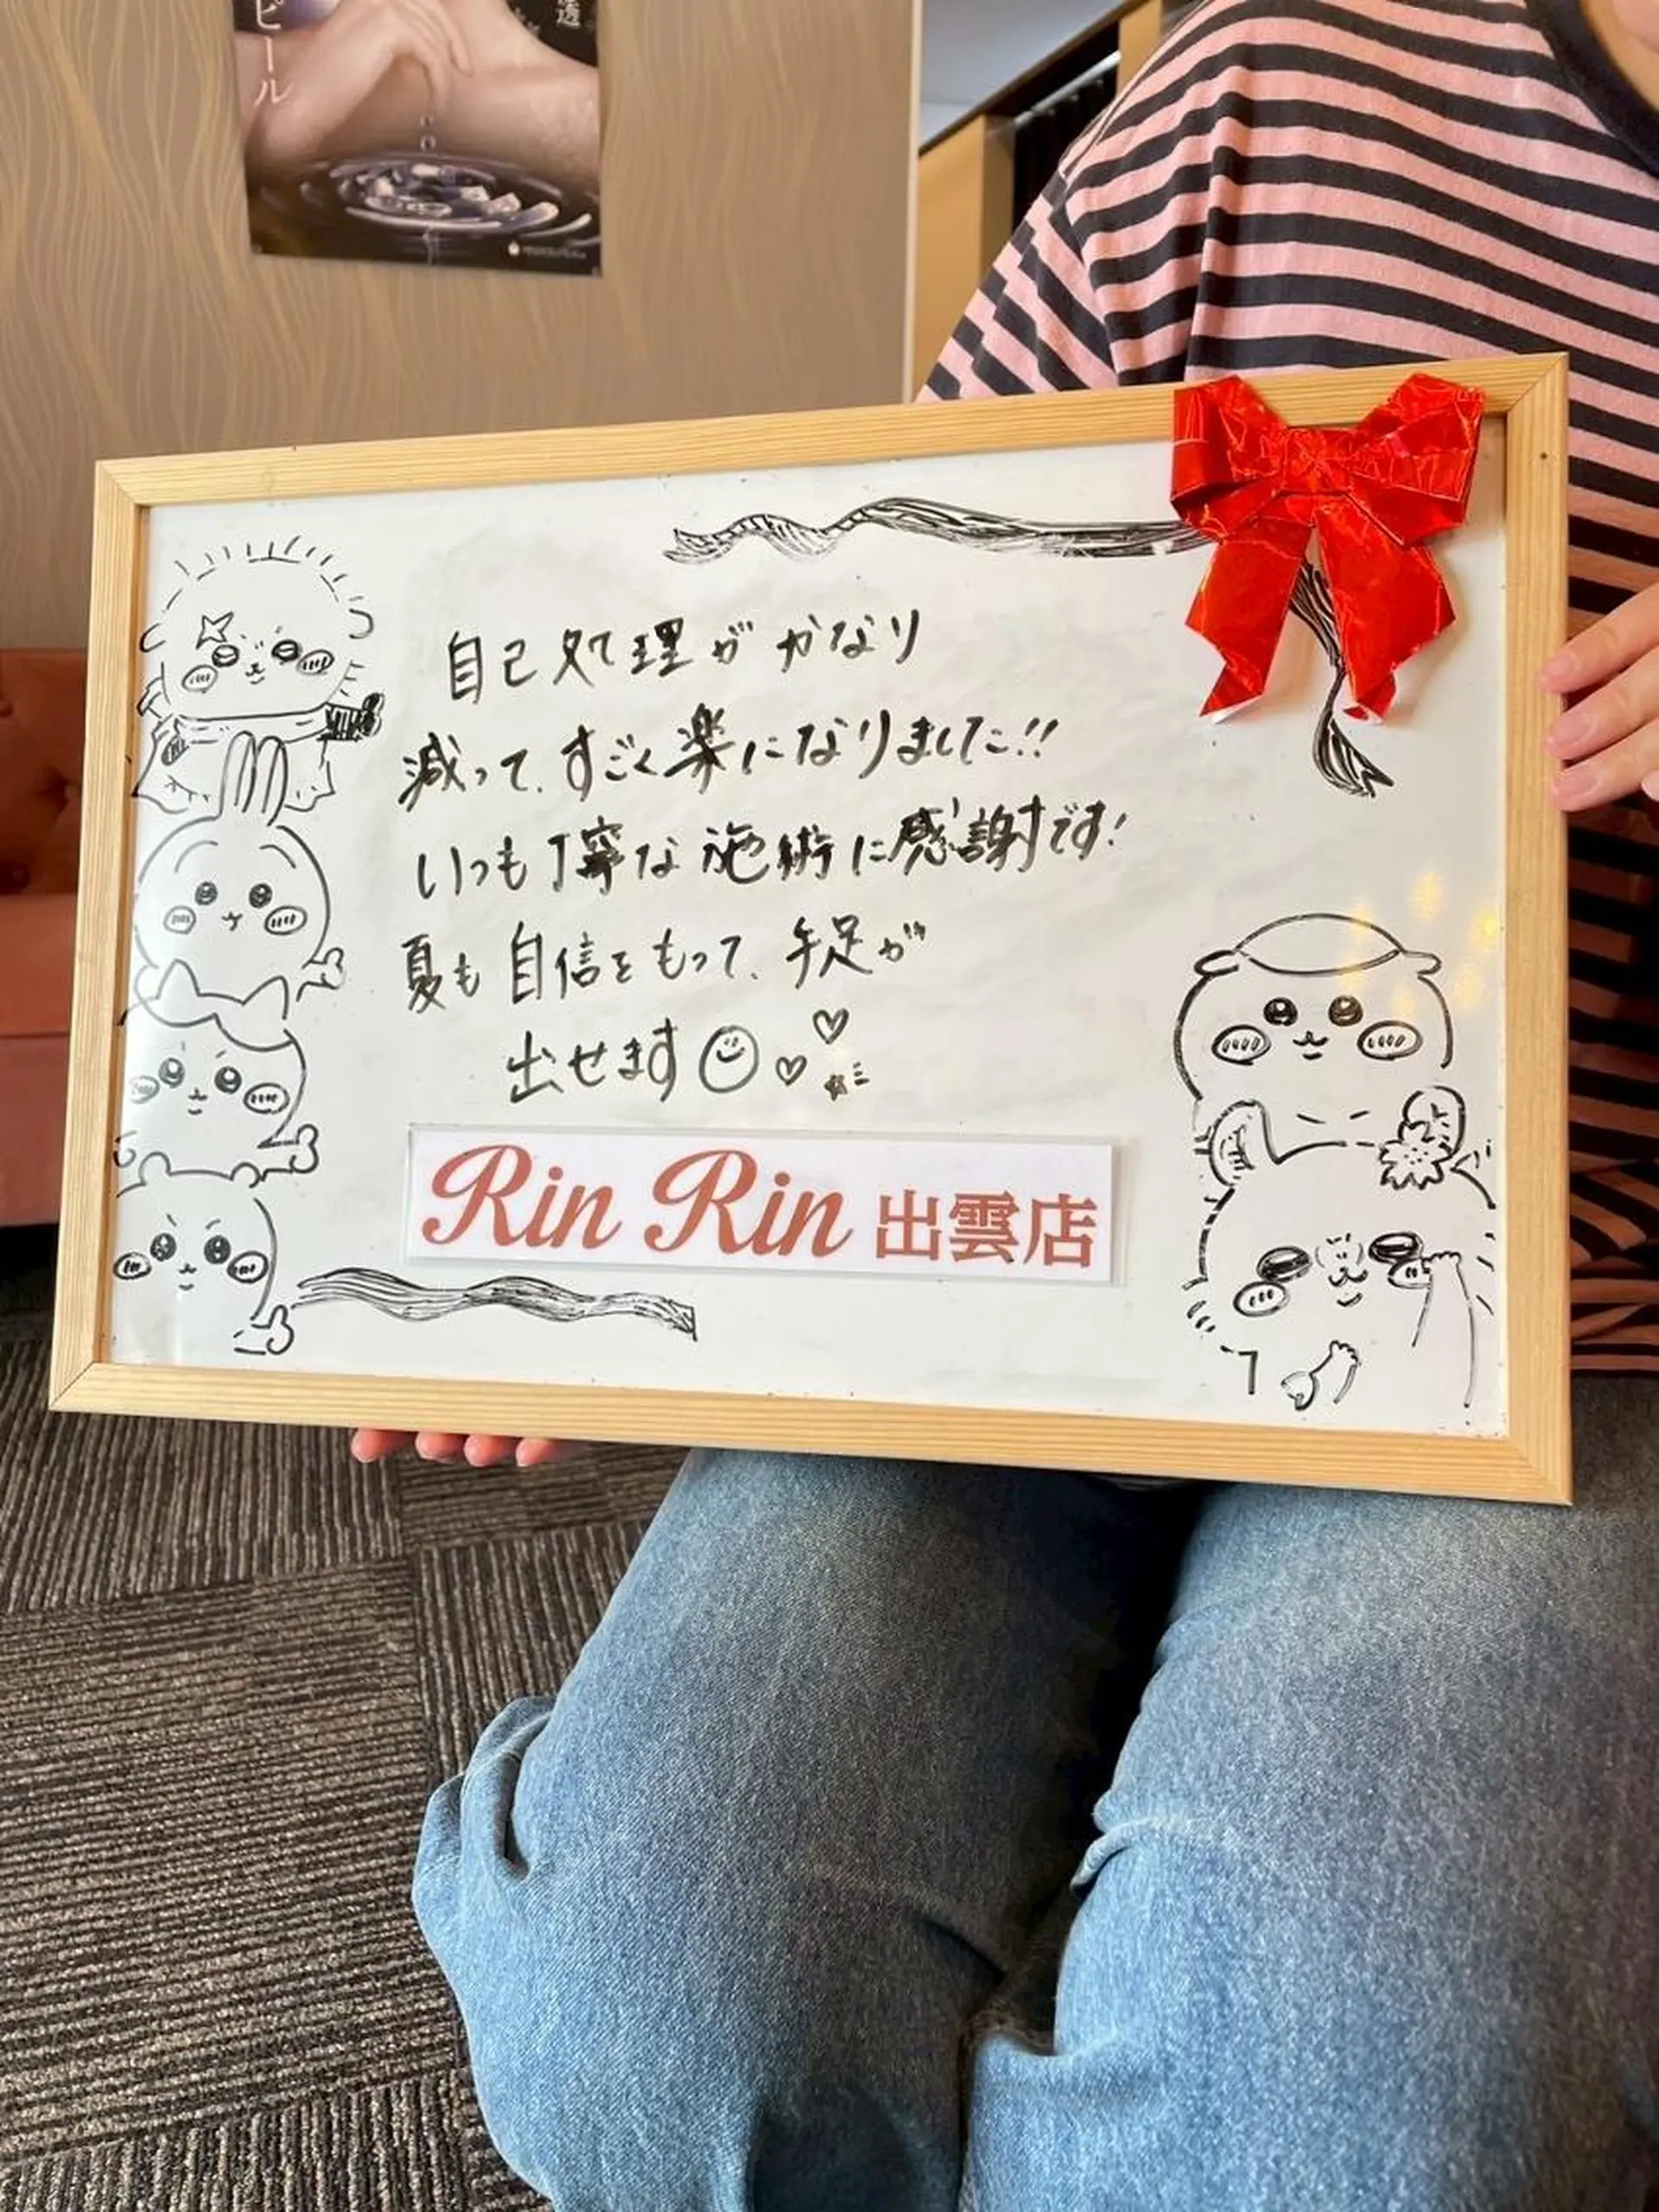 ピール
透
自己処理がかなり
減って、すごく楽になりました!!
いつも丁寧な施術に感謝です!
夏も自信をもって、手足が
出せます
Rin Rin 出雲店